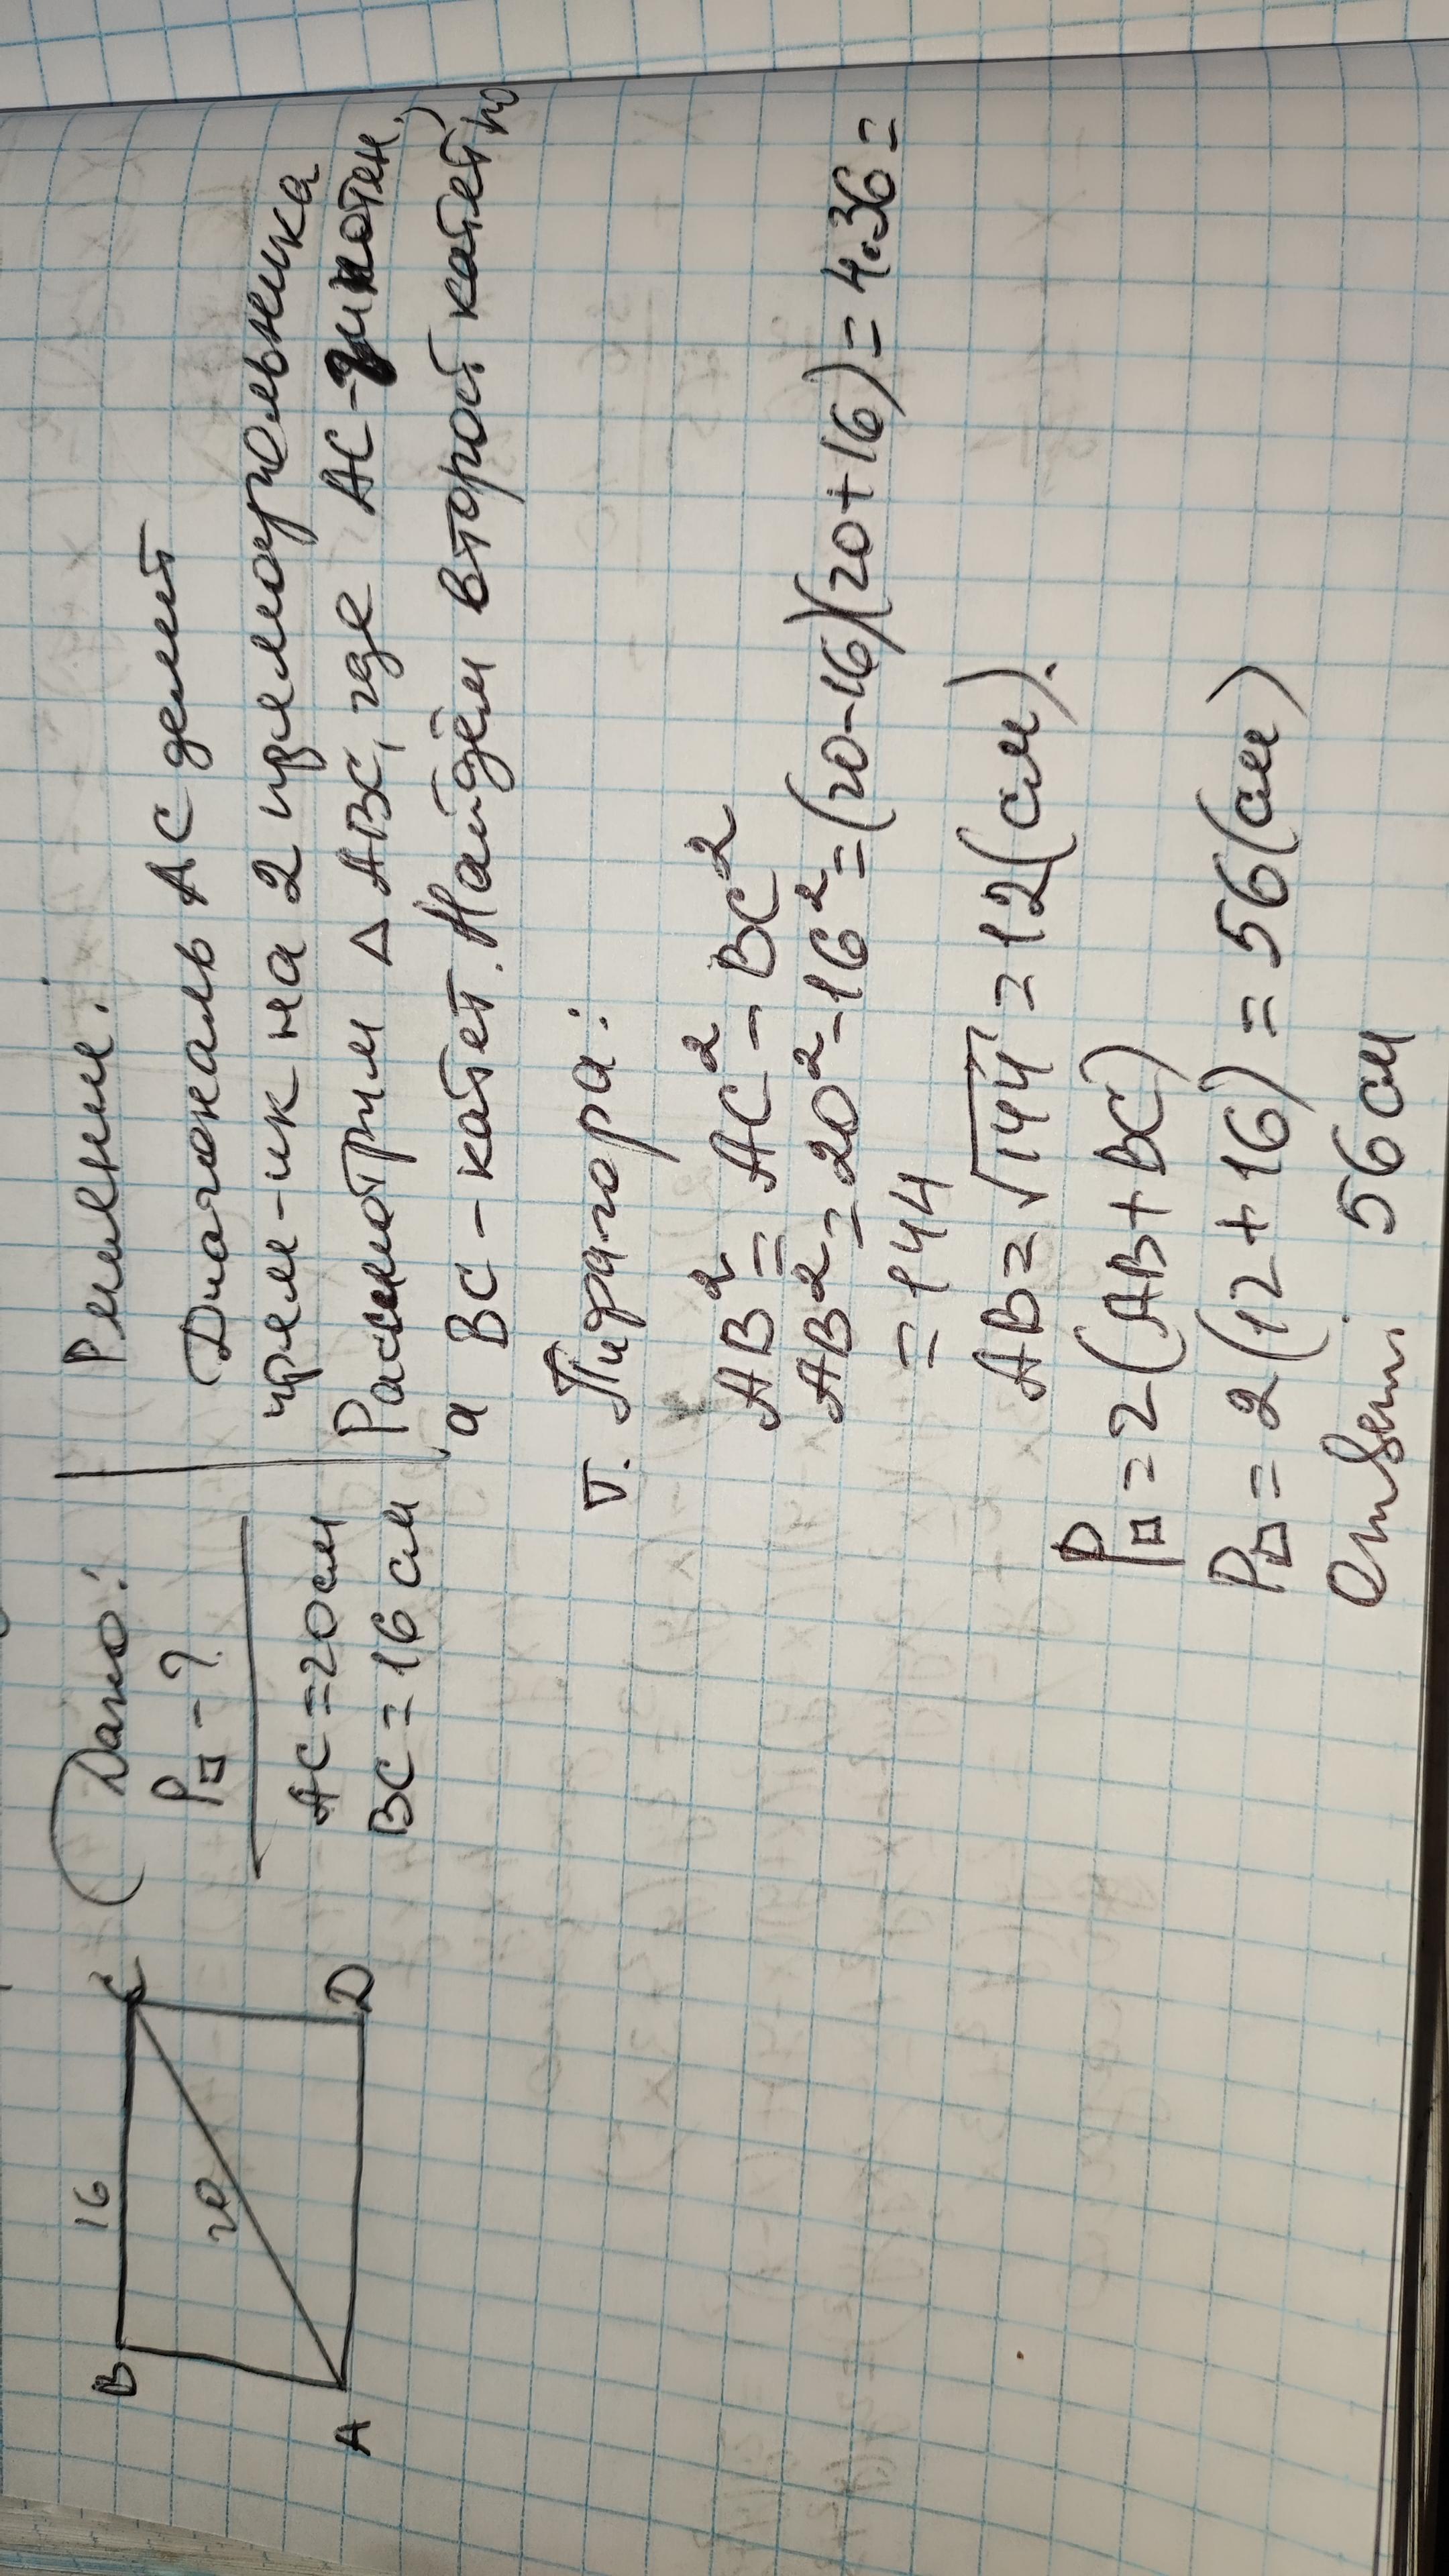 B 16 C
20
A D
Дано:
P□ - ?
AC = 20 см
BC = 16 см
Решение:
Диагональ AC делит
прям-ик на 2 прямоугольника
Рассмотрим △ ABC, где AC - гипотен.,
а BC - катет. Найдём второй катет по
т. Пифагора:
AB² = AC² - BC²
AB² = 20² - 16² = (20-16)(20+16) = 4·36 =
= 144
AB = √144 = 12 (см).
P□ = 2(AB + BC)
P□ = 2(12 + 16) = 56 (см)
Ответ: 56 см